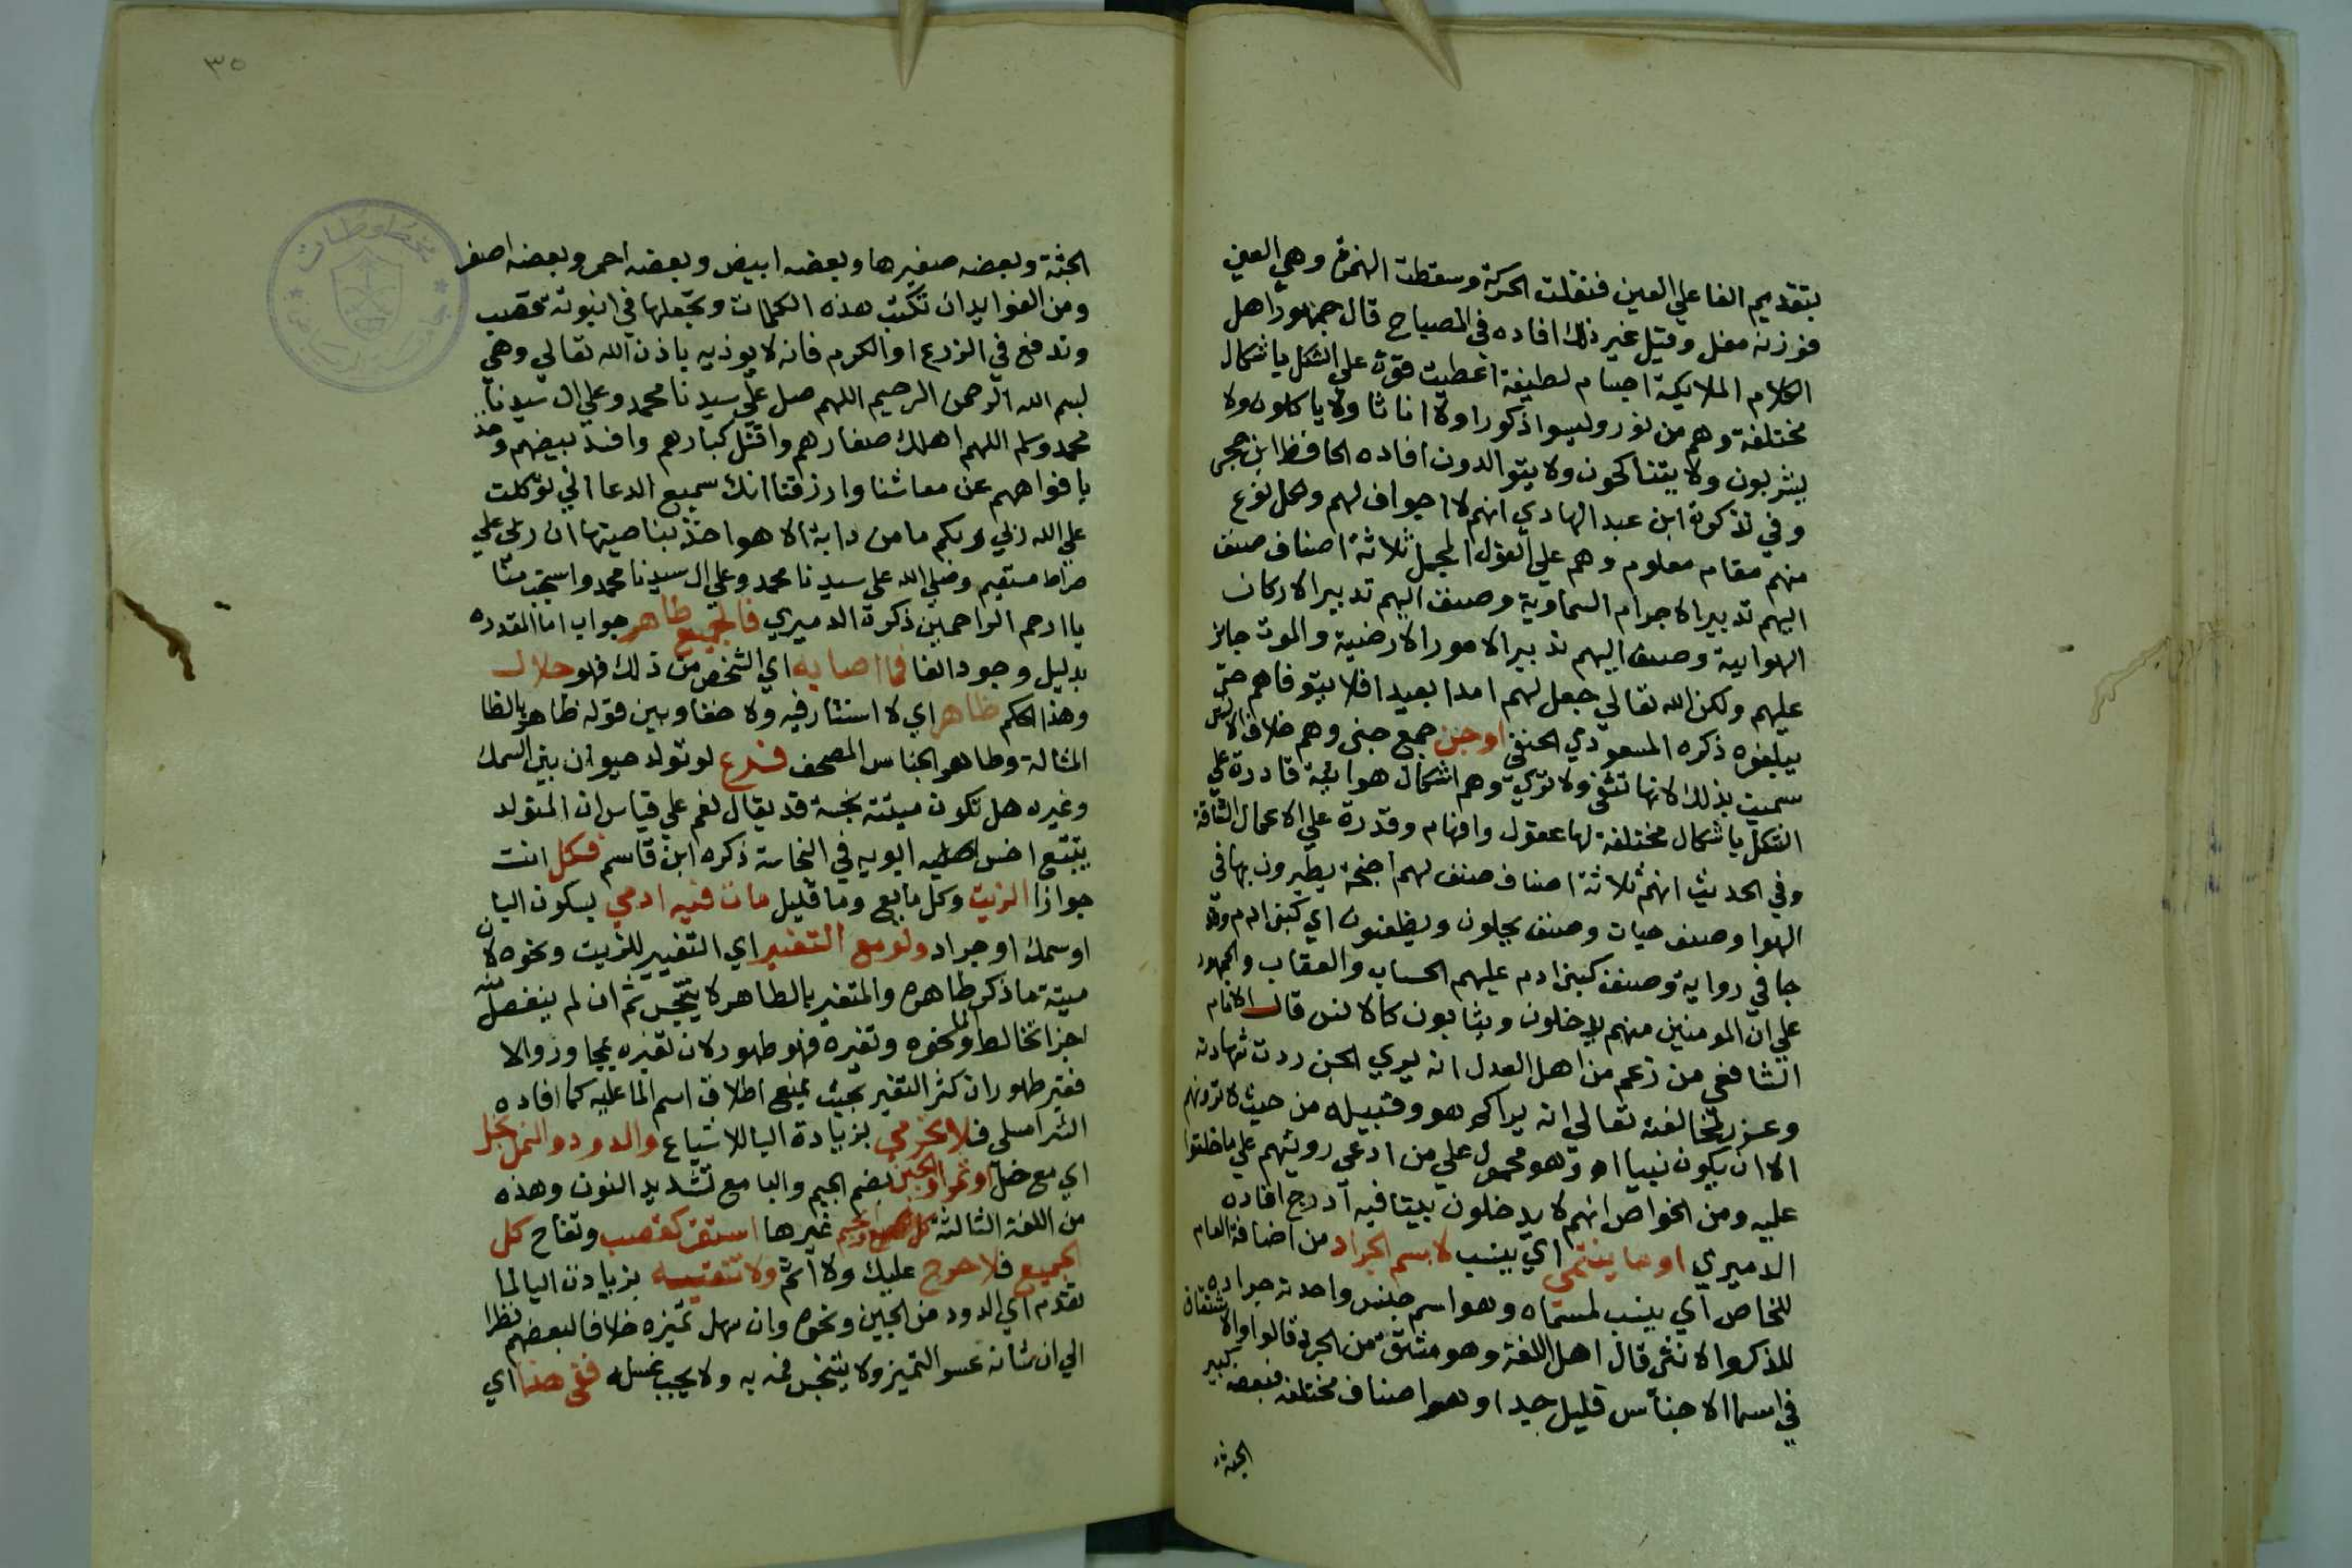 بتقديم الفا علي العين فنقلت الحركة وسقطت الهمزة وهي العين
فوزنه مفل وقيل غير ذلك افاده في المصباح قال جمهور اهل
الكلام الملايكة اجسام لطيفة اعطيت قوة علي التشكل باشكال
مختلفة وهم من نور وليسوا ذكورا ولا اناثا ولا ياكلون ولا
يشربون ولا يتناكحون ولا يتوالدون افاده الحافظ ابن حجر
وفي تذكرة ابن عبد الهادي انهم لا اجواف لهم وكل نوع
منهم مقام معلوم وهم علي القول المجمل ثلاثة اصناف صنف
اليهم تدبير الاجرام السماوية وصنف اليهم تدبير الاركان
الهوايية وصنف اليهم تدبير الامور الارضية والموت جايز
عليهم ولكن الله تعالي جعل لهم امدا بعيدا فلا يتوفاهم حتي
يبلغوه ذكره المسعودي الحنفي او جن جمع جني وهم خلاف الانس
سميت بذلك لانها تتقي ولا تري وهم اشكال هوائية قادرة علي
التشكل باشكال مختلفة لها عقول وافهام وقدرة علي الاعمال الشاقة
وفي الحديث انهم ثلاثة اصناف صنف لهم اجنحة يطيرون بها في
الهوا وصنف حيات وصنف يحلون ويظعنون اي كبني ادم وقد
جا في رواية وصنف كبني ادم عليهم الحساب والعقاب والجمهور
علي ان المومنين منهم يدخلون ويثابون كالانس قال الامام
الشافعي من زعم من اهل العدل انه يري الجن ردت شهادته
وعزر لمخالفته تعالي انه يراكم هو وقبيله من حيث لا ترونهم
الا ان يكون نبيا اه وهو محمول علي من ادعي رويتهم علي ما خلقوا
عليه ومن الخواص انهم لا يدخلون بيتا فيه اترج افاده
الدميري او ما ينتمي اي ينسب لاسم الجراد من اضافة العام
للخاص اي ينسب لمسماه وهو اسم جنس واحدته جراده
للذكر والانثي قال اهل اللغة وهو مشتق من الجرد قالوا والاشتقاق
في اسما الاجناس قليل جدا وهو اصناف مختلفة فبعضه كبير
الجثة
٣٥
الجثة وبعضه صغيرها وبعضه ابيض وبعضه احمر وبعضه اصفر
ومن الفوايد ان تكتب هذه الكلمات وتجعلها في انبوتة قصب
وتدفع في الزرع او الكرم فانه لا يوذيه باذن الله تعالي وهي
بسم الله الرحمن الرحيم اللهم صل علي سيدنا محمد وعلي ال سيدنا
محمد وسلم اللهم اهلك صغارهم واقتل كبارهم وافسد بيضهم وخذ
بافواههم عن معاشنا وارزقنا انك سميع الدعا اني توكلت
علي الله ربي وربكم ما من دابة الا هو اخذ بناصيتها ان ربي علي
صراط مستقيم وصلي الله علي سيدنا محمد وعلي ال سيدنا محمد واستجب منا
يا ارحم الراحمين ذكره الدميري فالجميع طاهر جواب اما المقدره
بدليل وجود الفا فما اصابه اي الشخص من ذلك فهو حلال
وهذا الحكم ظاهر اي لا استتار فيه ولا خفا وبين قوله ظاهر بالظا
المثالة وطاهر الجناس المصحف فرع لو تولد حيوان بين السمك
وغيره هل تكون ميتته نجسة قد يقال نعم علي قياس ان المتولد
يتبع اخس ابويه في النجاسة ذكره ابن قاسم فكل انت
جوازا الزيت وكل مايع وما قليل مات فيه ادمي بسكون اليا
او سمك او جراد ولو مع التغير اي التغيير للزيت ونحوه لان
ميتة ما ذكر طاهرة والمتغير بالطاهر لا ينجس ثم ان لم ينفصل منه
اجزا تخالط الما ونحوه وتغيره فهو طهور لان تغيره بمجاور والا
فغير طهور ان كثر التغير بحيث يمنع اطلاق اسم الما عليه كما افاده
الشبراملسي فلا تحرمي بزيادة اليا للاشباع والدود والنمل بخل
اي مع خل او تمر او الجبن بضم الجيم والبا مع تشديد النون وهذه
من اللغة الثالثة غيرها استقر كقصب وتفاح كل
الجميع فلا حرج عليك ولا اثم ولا تنقيه بزيادة اليا لما
تقدم اي الدود من الجبن ونحوه وان سهل تميزه خلافا لبعضهم نظرا
الي ان شانه عسر التميز ولا ينجس فمه به ولا يجب غسله ففي هذا اي